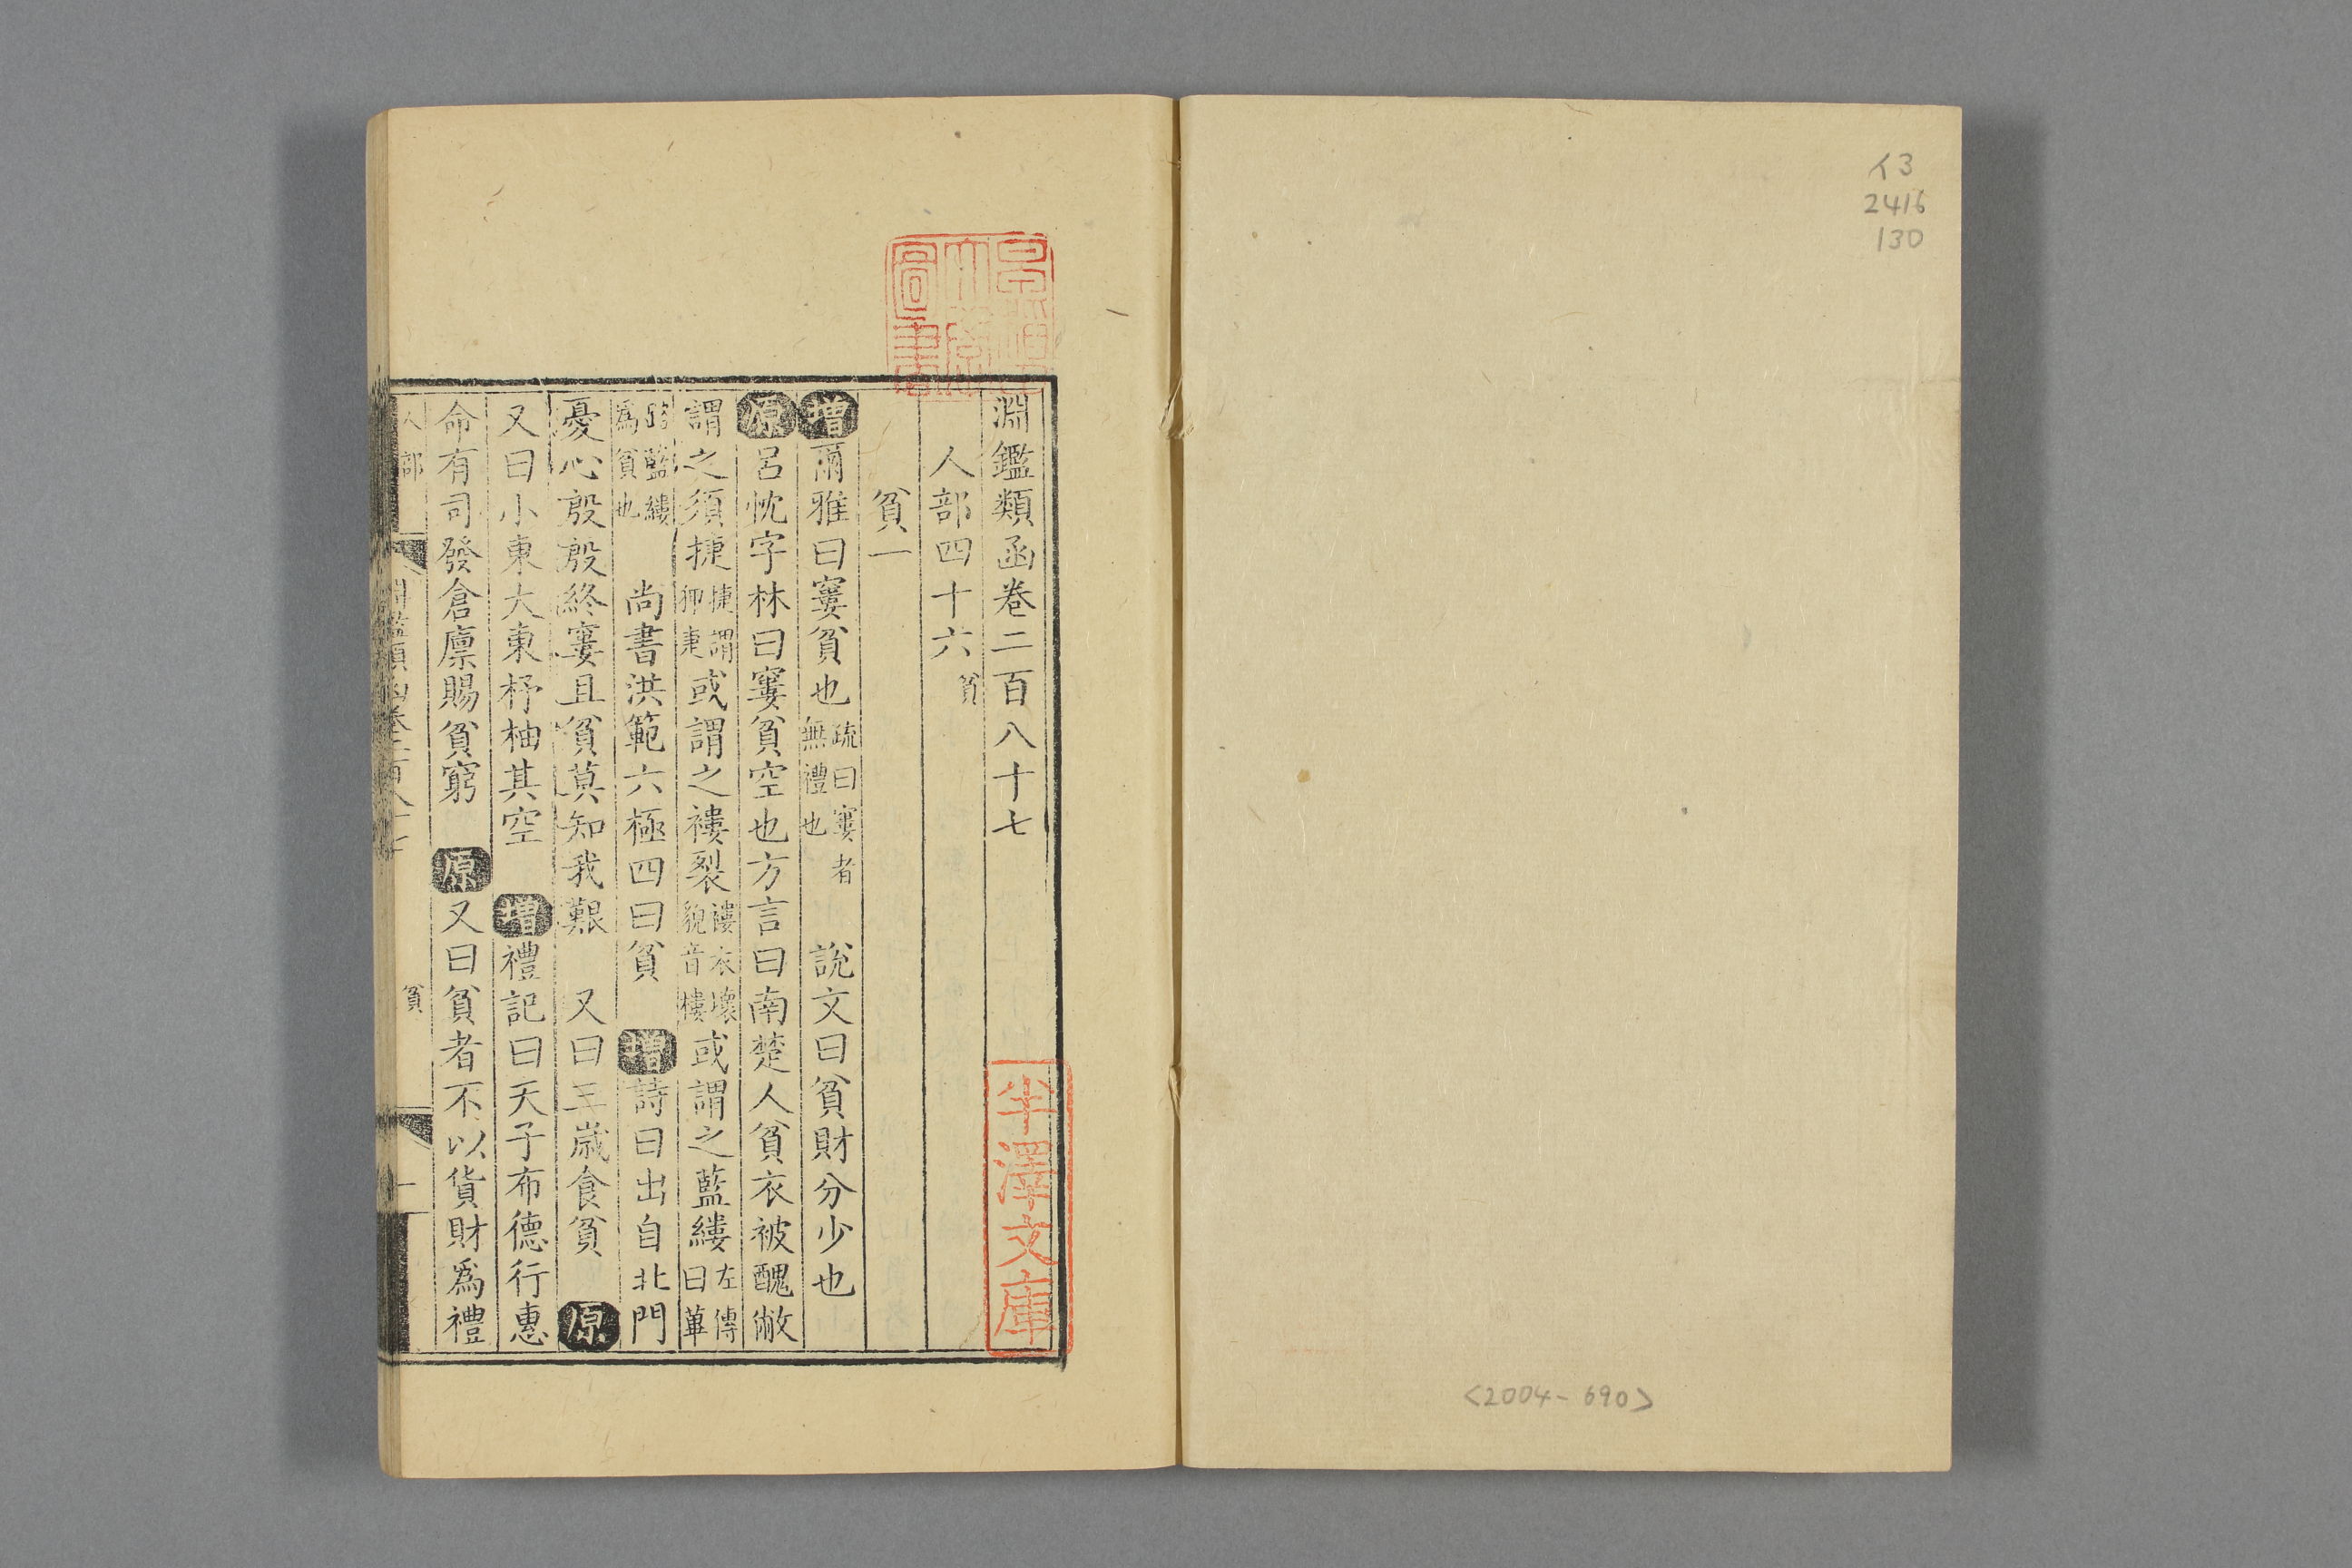 イ3
2416
130
<2004-690>
淵鑑類函卷二百八十七
人部四十六 貧
貧一
增爾雅曰窶貧也 疏曰窶者無禮也 說文曰貧財分少也
原呂忱字林曰窶貧空也方言曰南楚人貧衣被醜敝
謂之須捷 捷謂狎褱 或謂之褸裂 褸衣壞貌音樓 或謂之藍縷 左傳曰蓽
路藍縷為貧也 尚書洪範六極四曰貧 增詩曰出自北門
憂心殷殷終窶且貧莫知我艱 又曰三歲食貧 原
又曰小東大東杼柚其空 增禮記曰天子布德行惠
命有司發倉廩賜貧窮 原又曰貧者不以貨財爲禮
人部 淵鑑類函卷二百八十七 貧 一
圖書
半澤文庫